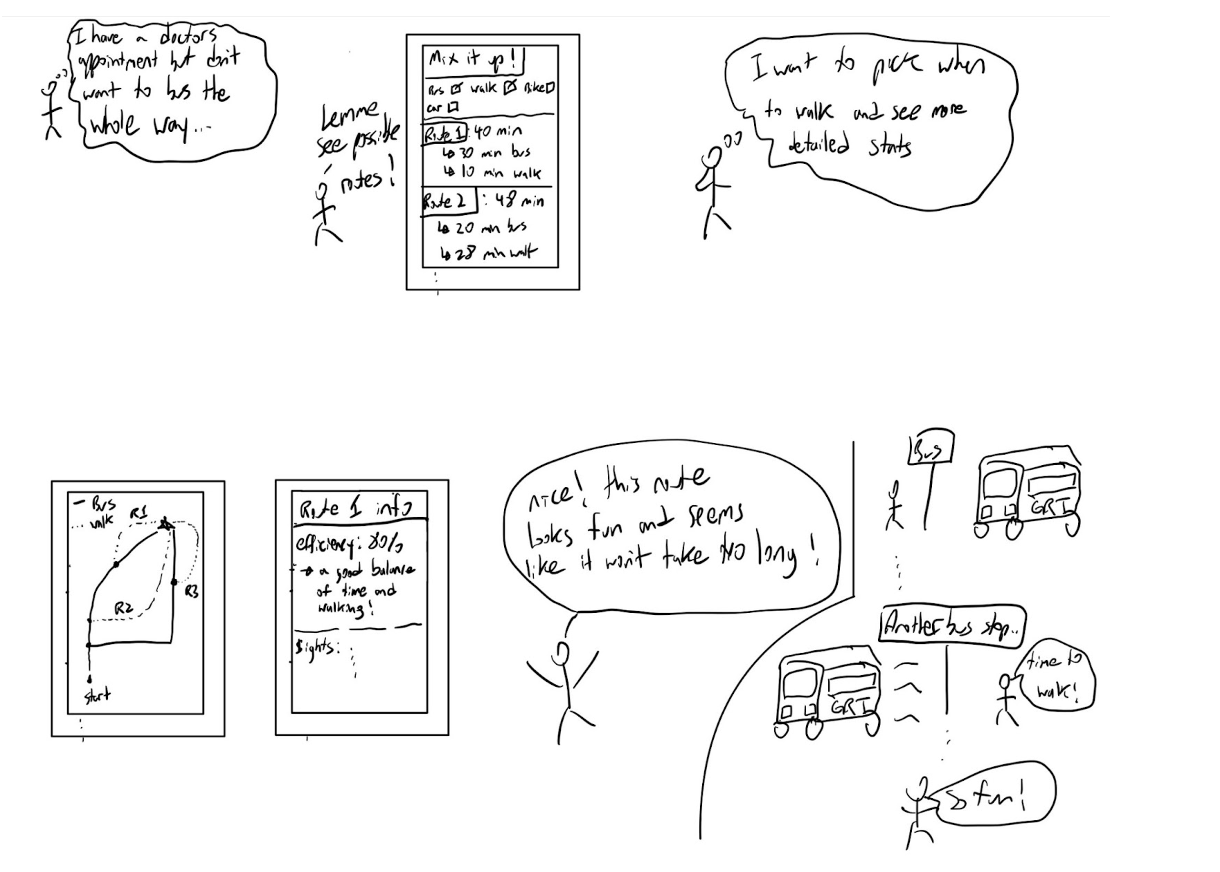 I have a doctors
appointment but don't
want to bus the
whole way...
Lemme
see possible
routes!
Mix it up!
Bus walk Bike
car
Route 1: 40 min
30 min bus
10 min walk
Route 2: 48 min
20 min bus
28 min walk
I want to pick when
to walk and see more
detailed stats
Bus
walk
R1
R2
R3
start
Route 1 info
efficiency: 80%
a good balance
of time and
walking!
Sights:
nice! this route
looks fun and seems
like it won't take too long!
Bus
GRT
Another bus stop..
GRT
time to
walk!
so fun!